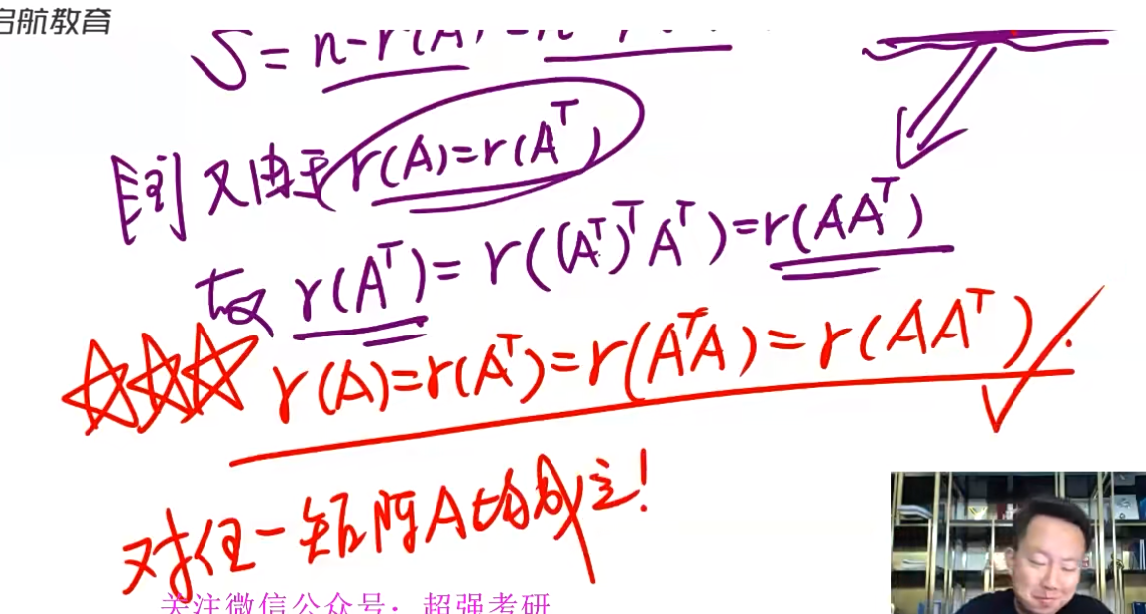 启航教育
S = n-r(A)
【注】又由于 r(A)=r(Aᵀ)
故 r(Aᵀ)= r((Aᵀ)ᵀAᵀ)=r(AAᵀ)
☆☆☆ r(A)=r(Aᵀ)=r(AᵀA)=r(AAᵀ) ✓.
对任一矩阵A均成立!
关注微信公众号：超强考研